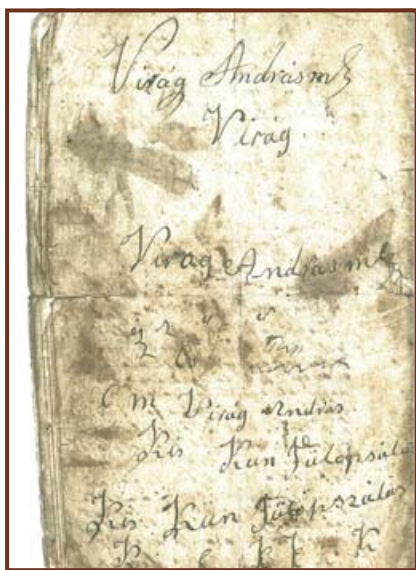 Virág András mk
Virág
Virag András mk
C m Virág András
Kis Kun Fülöpszálás
Kis Kun Fülöpszálás